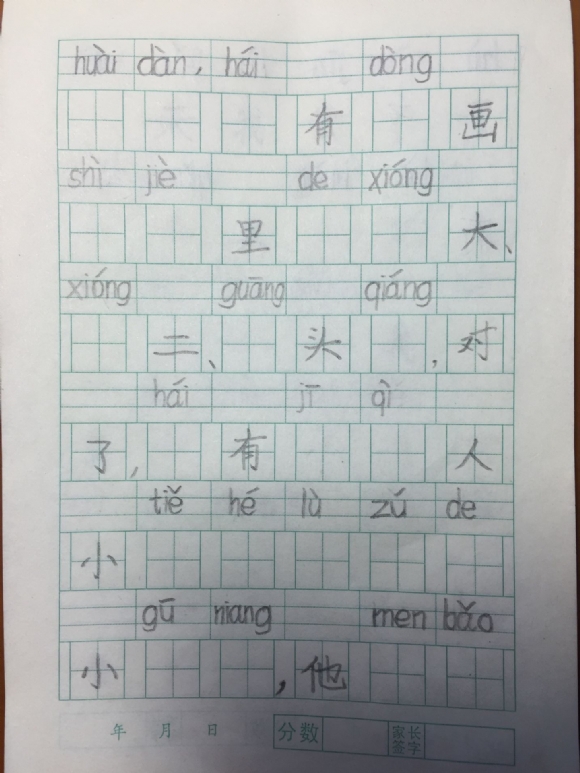 huài dàn, hái dòng
有 画
shì jiè de xióng
里 大、
xióng guāng qiáng
二、 头 , 对
hái jī qì
了, 有 人
tiě hé lù zú de
小
gū niang men bǎo
小 , 他
年 月 日 分数 家长签字